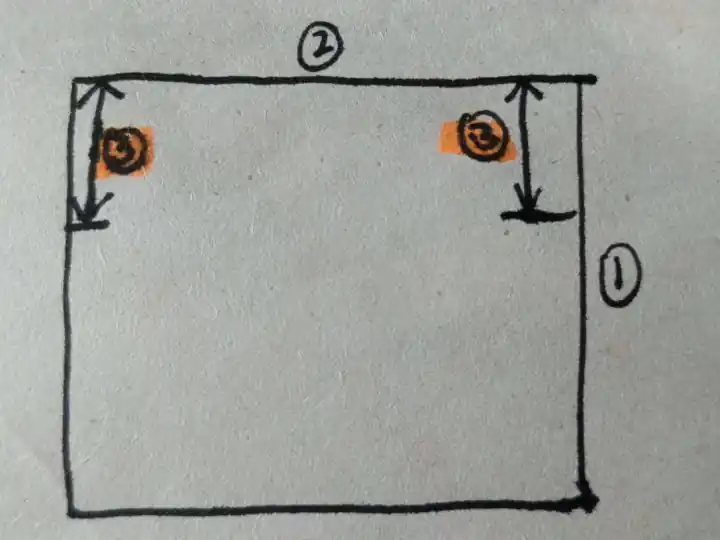 ②
③ ③
①